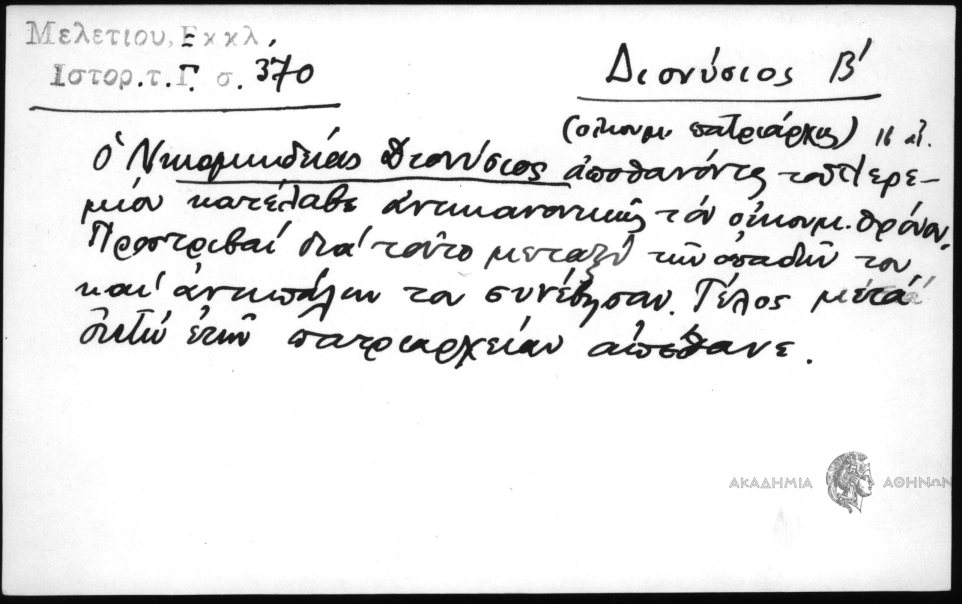 Μελετίου, Εκκλ.
Ιστορ. τ. Γ σ. 370
Διονύσιος Β΄
(οἰκουμ. πατριάρχης) 16 αἰ.
Ὁ Νικομηδείας Διονύσιος ἀποθανόντος τοῦ Ἱερε-
μίου κατέλαβε ἀντικανονικῶς τόν οἰκουμ. θρόνον.
Προστριβαί διά τοῦτο μεταξύ τῶν ὀπαδῶν του
καί ἀντιπάλων του συνέβησαν. Τέλος μετά
ὀκτώ ἐτῶν πατριαρχείαν ἀπέθανε.
ΑΚΑΔΗΜΙΑ ΑΘΗΝΩΝ